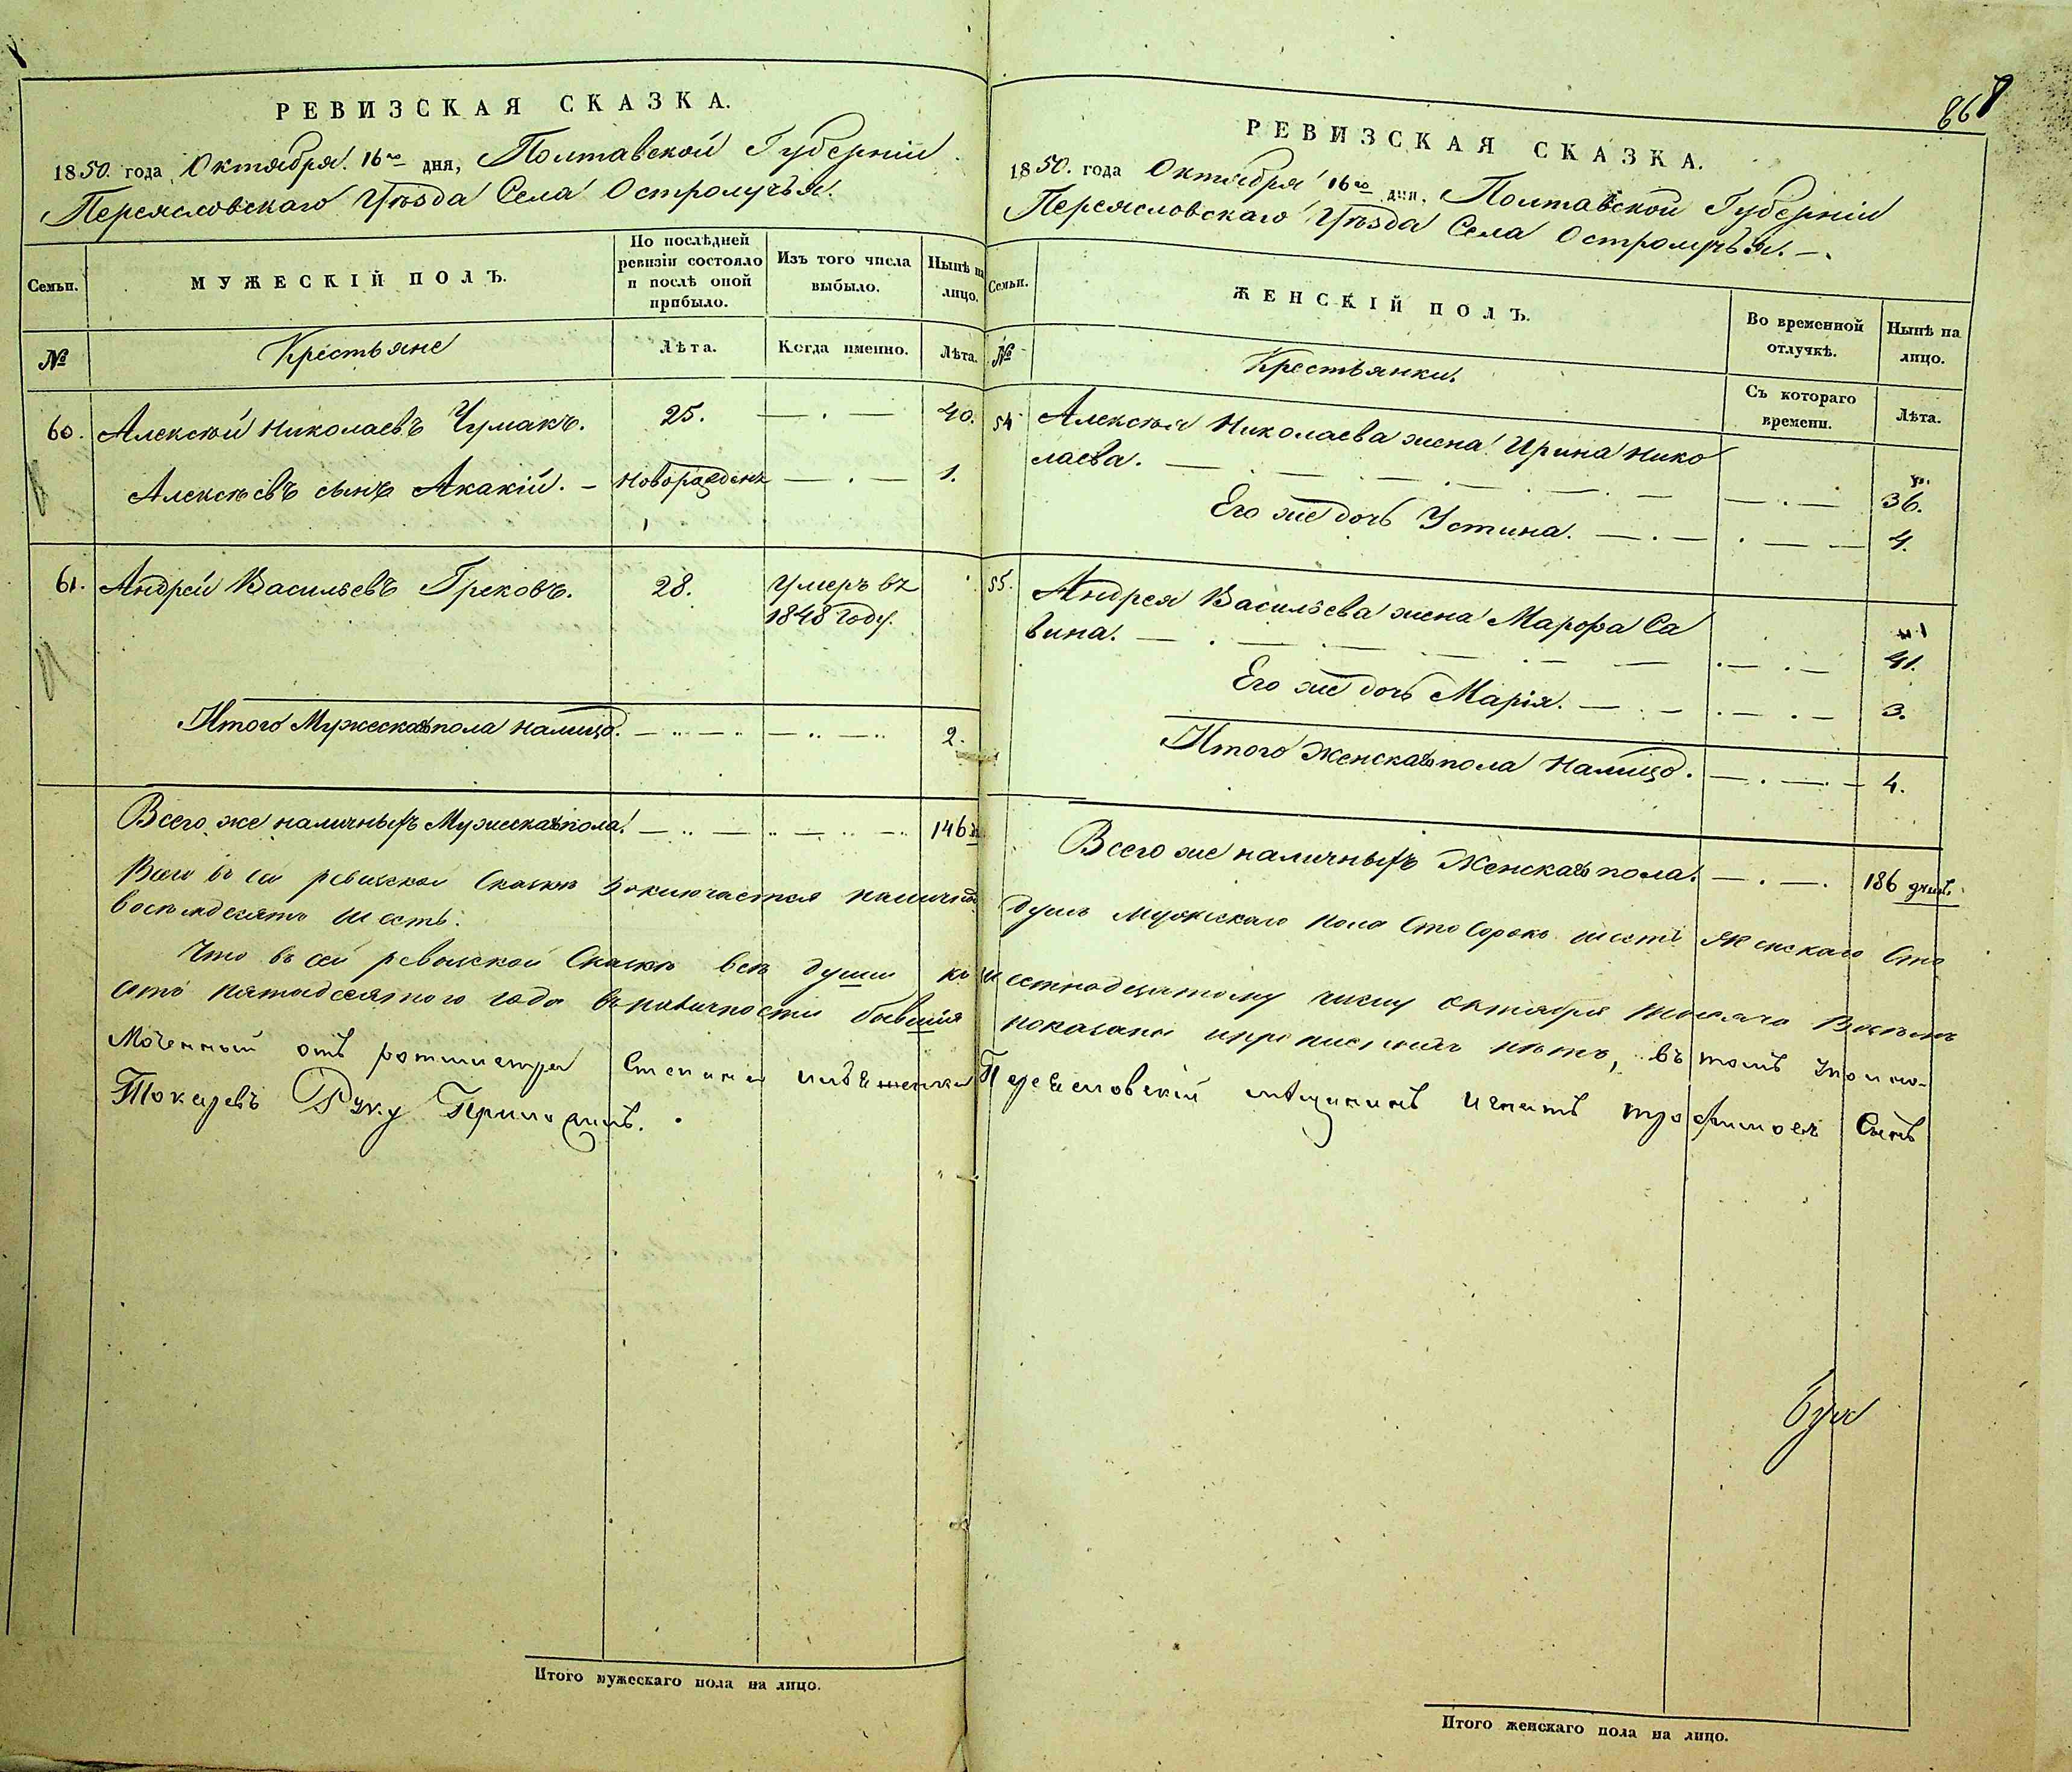 РЕВИЗСКАЯ СКАЗКА.
1850. года Октября 16го дня, Полтавской Губерніи
Переясловскаго Уѣзда Села Остролучья.
Семьи.
МУЖЕСКІЙ ПОЛЪ.
По послѣдней
ревизіи состояло
и послѣ оной
прибыло.
Изъ того числа
выбыло.
Нынѣ на
лицо.
№
Крестьяне
Лѣта.
Когда именно.
Лѣта.
60. Алексѣй Николаевъ Чумакъ. 25. — . — 40.
Алексѣевъ сынъ Акакій. – новорожденъ — . — 1.
61. Андрей Васильевъ Грековъ. 28. Умеръ въ
1848 году.
Итого Мужеска пола налицо. — .. — .. — .. — .. 2.
Всего же наличныхъ Мужеска пола. — .. — .. — .. — .. 146
Итого мужескаго пола на лицо.
867
РЕВИЗСКАЯ СКАЗКА.
1850. года Октября 16го дня, Полтавской Губерніи
Переясловскаго Уѣзда Села Остролучья. –.
Семьи.
ЖЕНСКІЙ ПОЛЪ.
Во временной
отлучкѣ.
Нынѣ на
лицо.
№
Крестьянки.
Съ котораго
времени.
Лѣта.
54 Алексѣя Николаева жена Ирина Нико
лаева. — . — . — . — . — — . — 36.
Его же дочь Устина. — . — . — — 4.
55. Андрея Васильева жена Марфа Са
вина. — . — . — . — — . — . — 41.
Его же дочь Марія. — . – . — . – 3.
Итого Женска пола налицо. — . — . – 4.
Всего же наличныхъ Женска пола. — . — . 186 душъ.
Всего въ сей ревизской Сказкѣ заключается наличныхъ душъ мужескаго пола Сто Сорокъ шесть Женскаго Сто
восемдесятъ шесть.
Что въ сей ревизской Сказкѣ всѣ души къ шестнадцатому числу октября тысяча Восемъ
сотъ пятидесятого года въ наличности бывшія показаны и прописныхъ нѣтъ, въ томъ уполно-
моченный отъ ротмистра Степана Переясловскій мѣщанинъ Игнатъ трофимовъ Сынъ
Токаревъ Руку Приложилъ.
Итого женскаго пола на лицо.